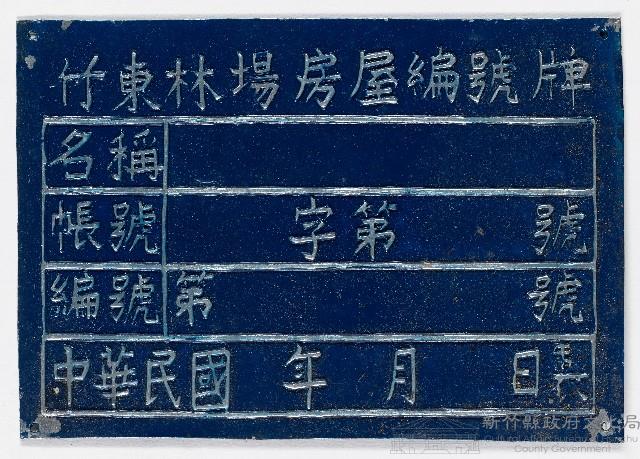 竹東林場房屋編號牌
名稱
帳號 字第 號
編號 第 號
中華民國 年 月 日
新竹縣政府文化局
County Government